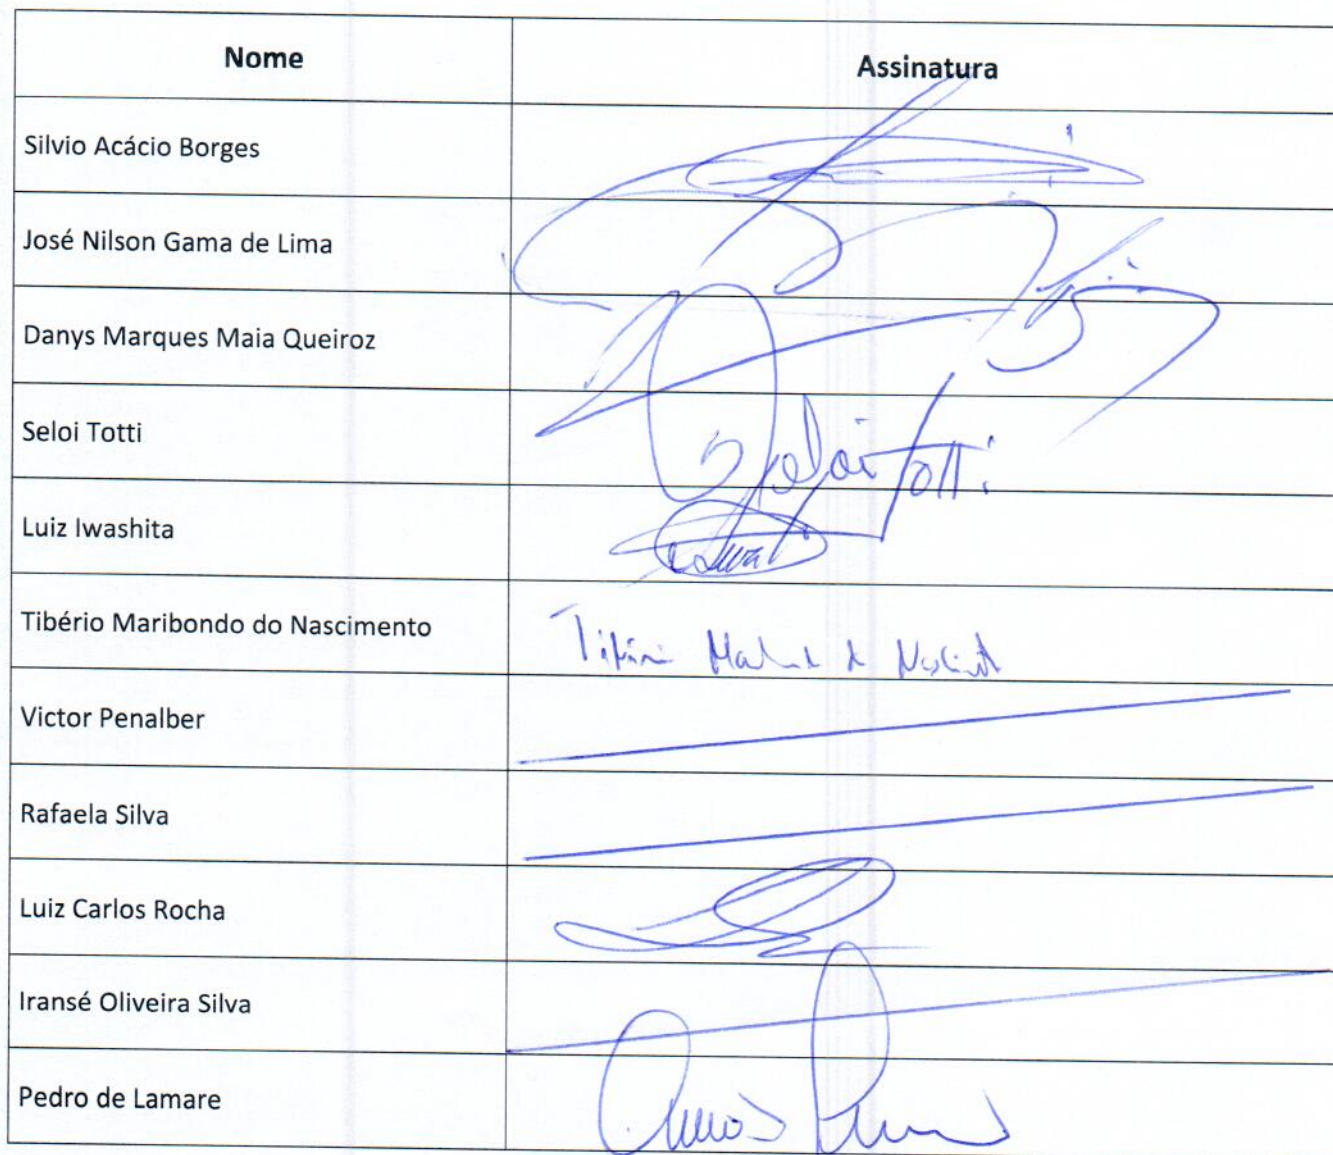 Nome Assinatura
Silvio Acácio Borges
José Nilson Gama de Lima
Danys Marques Maia Queiroz
Seloi Totti Seloi Totti
Luiz Iwashita
Tibério Maribondo do Nascimento
Victor Penalber
Rafaela Silva
Luiz Carlos Rocha
Iransé Oliveira Silva
Pedro de Lamare